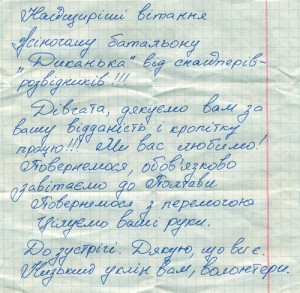 Найщиріші вітання
Жіночому батальону
"Диканька" від снайперів-
розвідників!!!
Дівчата, дякуємо вам за
вашу відданість і кропітку
працю!!! Ми вас любимо!
Повернемося, обов'язково
завітаємо до Полтави
Повернемося з перемогою
Цілуємо ваші руки.
До зустрічі. Дякую, що ви є.
Низький уклін вам, волонтери.